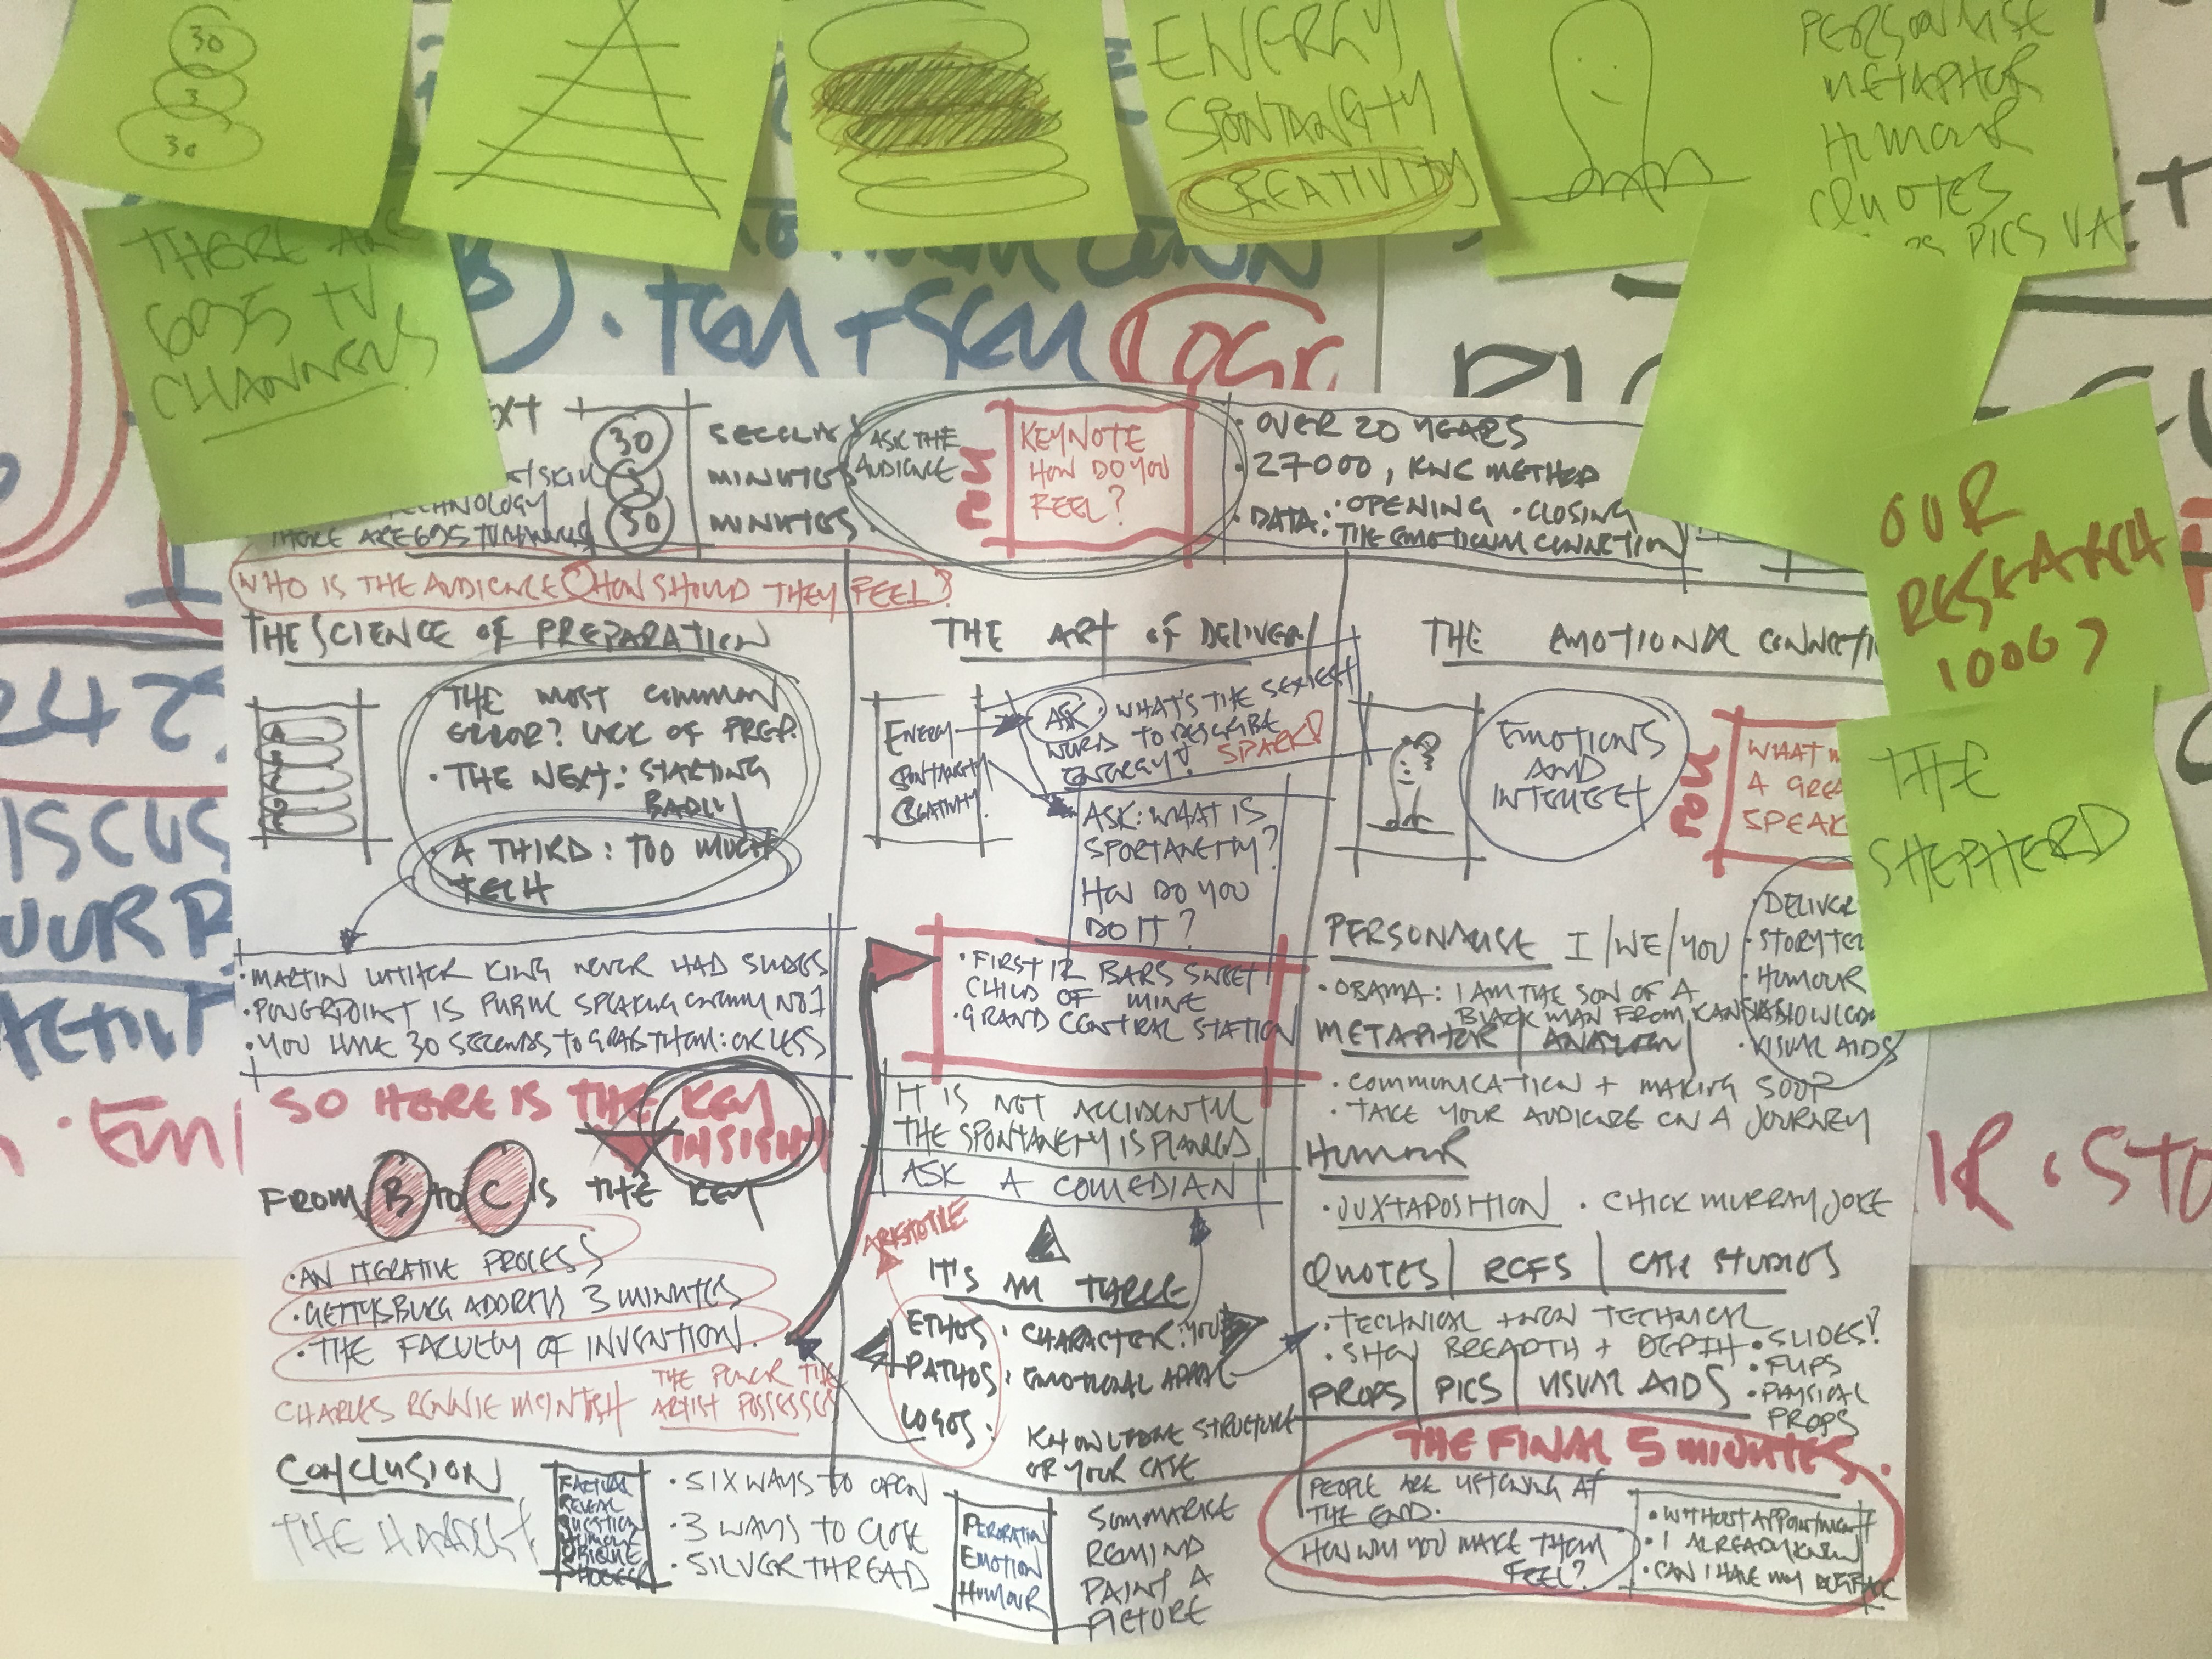 30
3
30
ENERGY
SPONTANGTY
CREATIVITY
PERSONALISE
METAPHOR
HUMOUR
QUOTES
PICS VA
THERE ARE
695 TV
CHANNELS
TEM + SEM
OUR
RESEARCH
1000
THE
SHEPHERD
30
MINUTES
30
MINUTES.
THERE ARE 695 TV CHANNELS
ASK THE
AUDIENCE
KEYNOTE
HOW DO YOU
FEEL?
· OVER 20 YEARS
· 27000, KNC METHOD
· DATA: · OPENING · CLOSING
THE EMOTIONAL CONNECTION
WHO IS THE AUDIENCE HOW SHOULD THEY FEEL?
THE SCIENCE OF PREPARATION
THE MOST COMMON
ERROR? LACK OF PREP.
· THE NEXT: STARTING
BADLY
· A THIRD: TOO MUCH
TECH
· MARTIN LUTHER KING NEVER HAD SLIDES
· POWERPOINT IS PUBLIC SPEAKING ENEMY NO1
· YOU HAVE 30 SECONDS TO GRAB THEM: OR LESS
SO HERE IS THE KEY
INSIGHT
FROM B TO C IS THE KEY
· AN ITERATIVE PROCESS
· GETTYSBURG ADDRESS 3 MINUTES
· THE FACULTY OF INVENTION.
CHARLES RENNIE MCINTOSH THE POWER THE
ARTIST POSSESSES
THE ART OF DELIVERY
ENERGY
SPONTANGTY
CREATIVITY
ASK: WHAT'S THE SEXIEST
WORD TO DESCRIBE
ENERGY? SPARK!
ASK: WHAT IS
SPORTANETTY?
HOW DO YOU
DO IT?
· FIRST 12 BARS SWEET
CHILD OF MINE
· GRAND CENTRAL STATION
IT IS NOT ACCIDENTAL
THE SPONTANETY IS PLANNED
ASK A COMEDIAN
ARISTOTLE
ETHOS: CHARACTER: YOU
PATHOS: EMOTIONAL APPEAL
LOGOS: KNOWLEDGE STRUCTURE
OR YOUR CASE
THE EMOTIONAL CONNECTI
EMOTIONS
AND
INTELLECT
WHAT
A GREA
SPEAK
· DELIVER
· STORYTEL
· HUMOUR
· VISUAL AIDS
PERSONALISE I/WE/YOU
· OBAMA: I AM THE SON OF A
BLACK MAN FROM KANSAS
METAPHOR | ANALOGY
· COMMUNICATION + MAKING SOUP
· TAKE YOUR AUDIENCE ON A JOURNEY
HUMOUR
· JUXTAPOSITION · CHICK MURRAY JOKE
QUOTES | REFS | CASE STUDIES
· TECHNICAL + NON TECHNICAL
· SHOW BREADTH + DEPTH
PROPS | PICS | VISUAL AIDS
· SLIDES?
· FLIPS
· PHYSICAL
PROPS
CONCLUSION
THE HARDEST
FACTUAL
REVEAL
QUESTION
HUMOUR
· SIX WAYS TO OPEN
· 3 WAYS TO CLOSE
· SILVER THREAD
PERORATION
EMOTION
HUMOUR
SUMMARISE
REMIND
PAINT A
PICTURE
THE FINAL 5 MINUTES.
PEOPLE ARE LISTENING AT
THE END.
HOW WILL YOU MAKE THEM
FEEL?
· WITHOUT APPOINTMENT
· I ALREADY KNEW
· CAN I HAVE MY